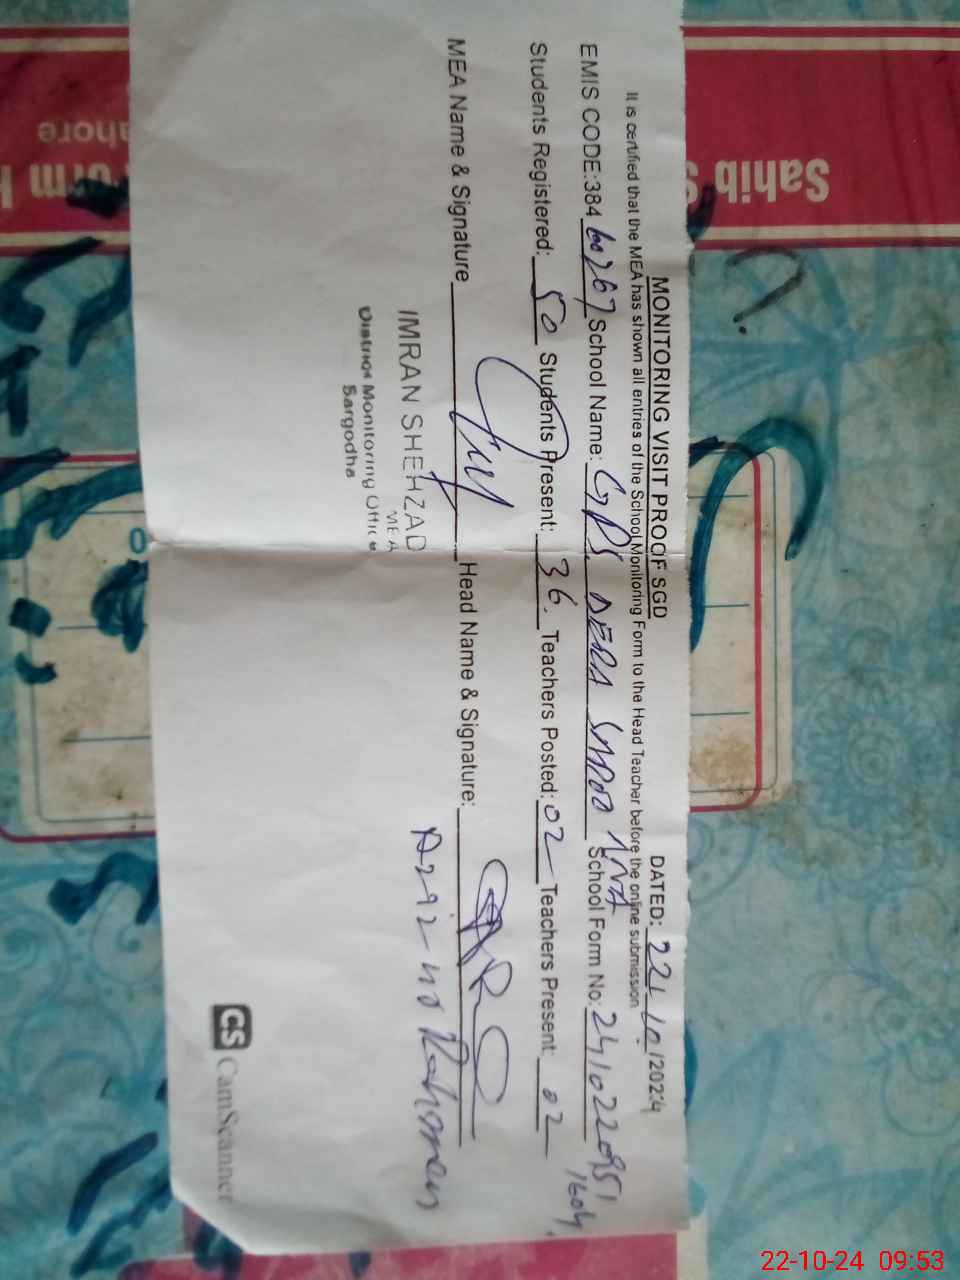 MONITORING VISIT PROOF SGD DATED: 22/10/2024
It is certified that the MEA has shown all entries of the School Monitoring Form to the Head Teacher before the online submission.
EMIS CODE:384 60267 School Name: GPS. DERA School Form No: 241022095 1604
Students Registered: 50 Students Present: 36. Teachers Posted: 02 Teachers Present: 02
MEA Name & Signature Head Name & Signature:
IMRAN SHEHZAD
MEA
District Monitoring Office
Sargodha
Rahman
CS CamScanner
Sahib
22-10-24 09:53